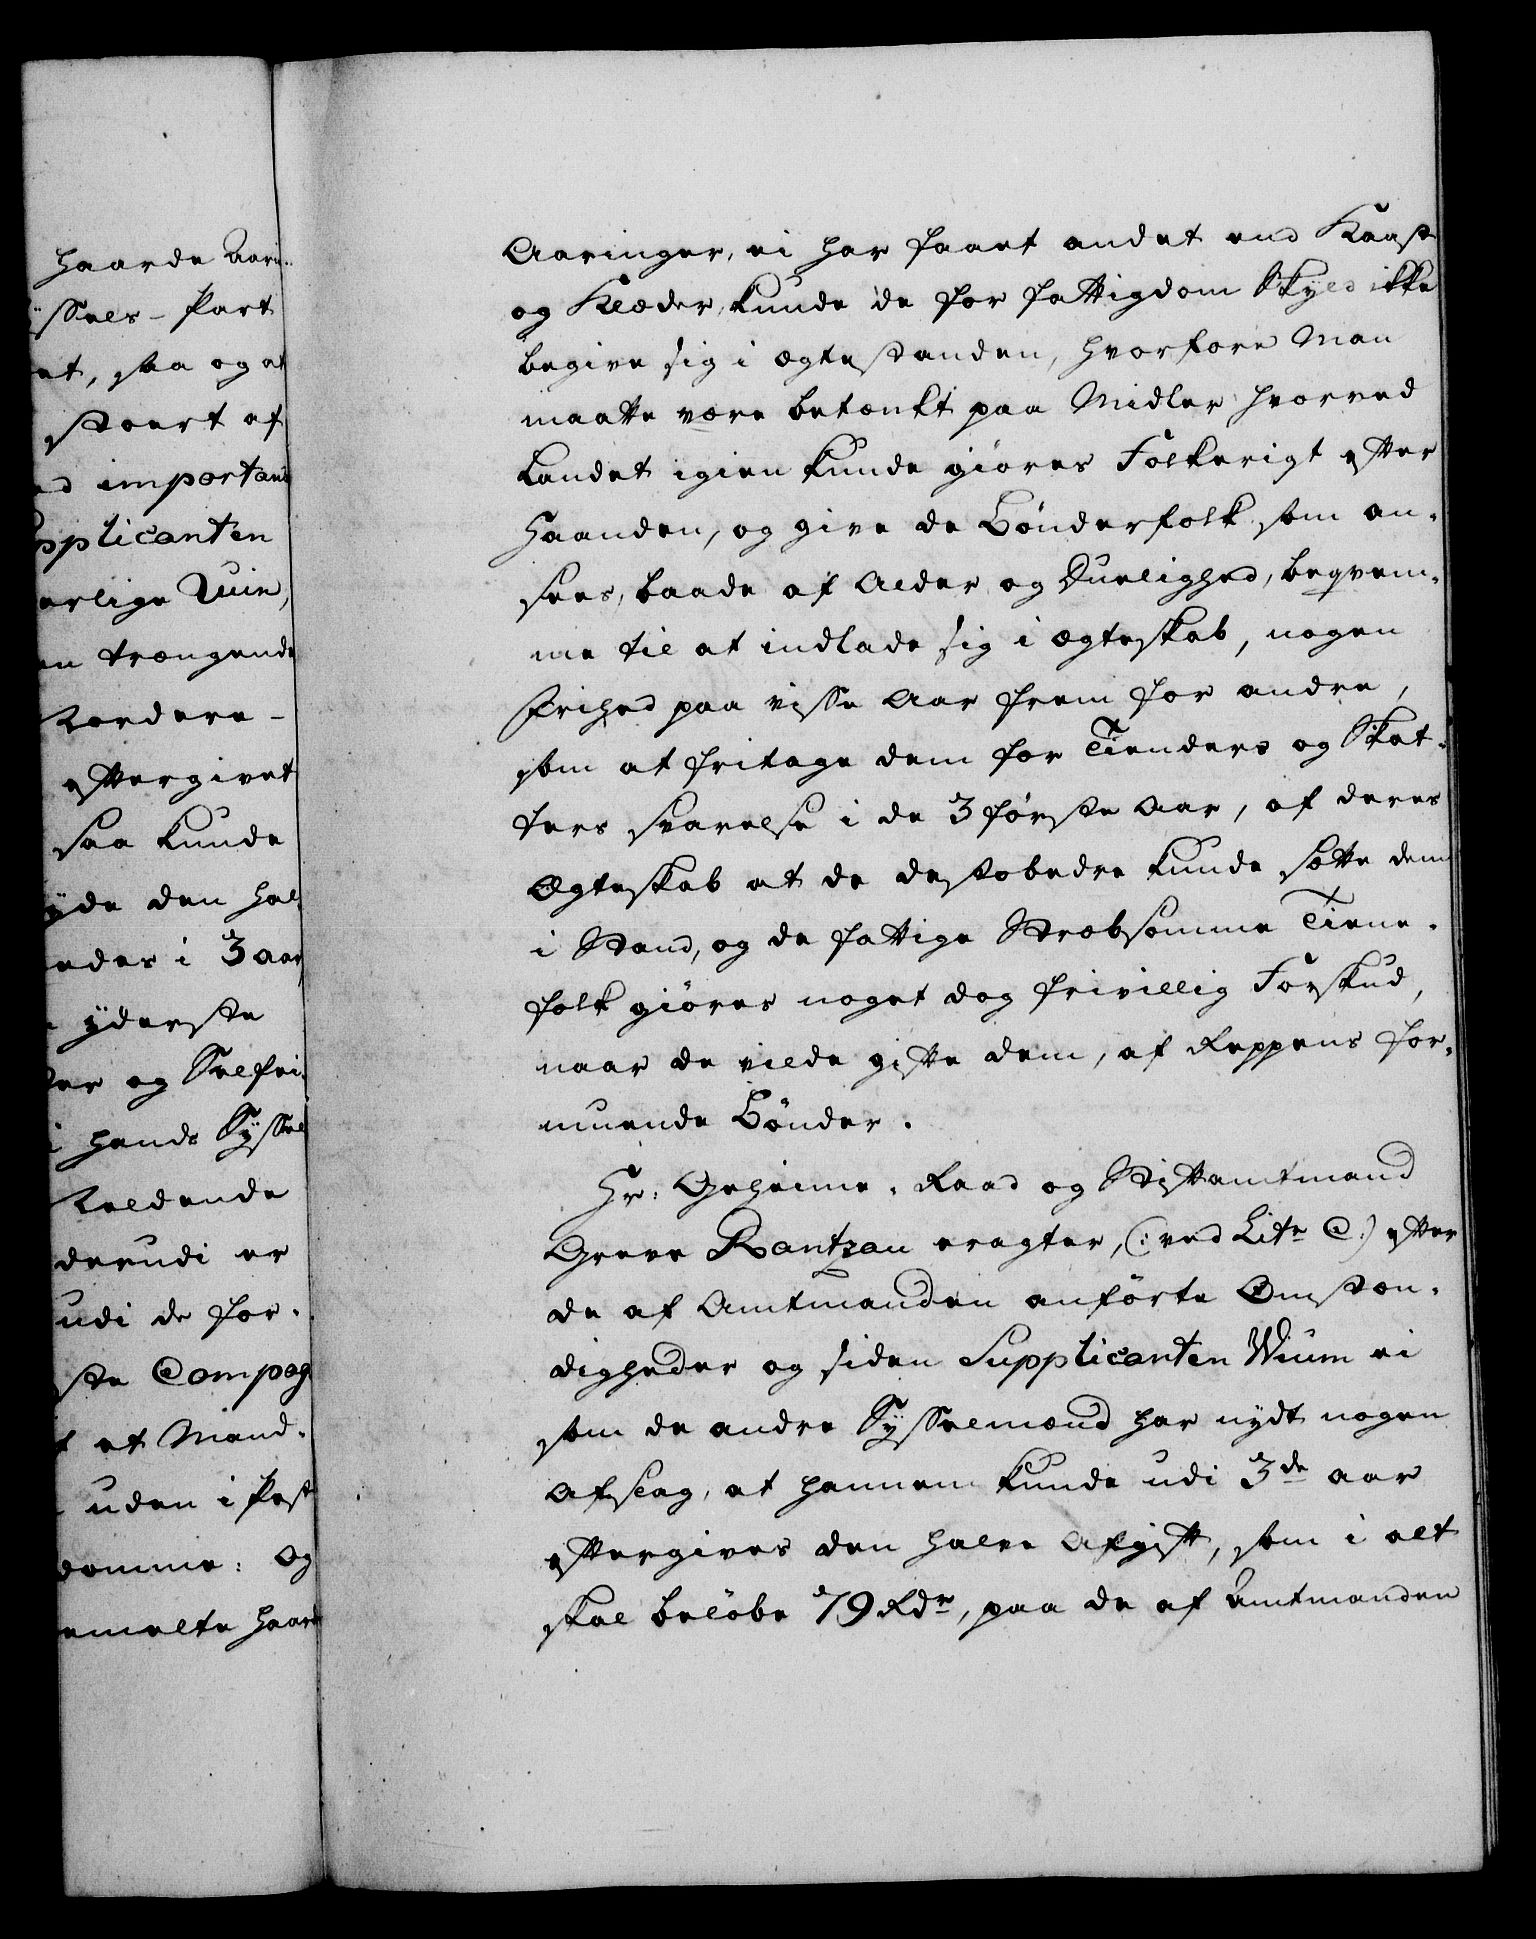 haarde Aari
yssels-Part
et, saa og at
stoert af
ed important
pplicanten
erlige Ruin,
en trængende
Vordere-
eftergivet
saa kunde
yde den hal
edes i 3 aar,
yderste
er og Selfri
i hends Syssel
Veldende
derudi er
udi de for-
ste Compag
et Mand-
uden i Pest
domme: Og
emelte haard
Aaringer, ei har faaet andet end Kaast
og Klæder, kunde de for fattigdom Skyld ikke
begive sig i ægtestanden, hvorfore Man
maatte være betænkt paa Midler hvorved
Landet igien kunde giøres Folkerigt efter
Haanden, og give de Bønderfolk som an-
sees, baade af Alder og Duelighed, beqvem-
me til at indlade sig i ægteskab, nogen
Frihed paa visse Aar frem for andre,
som at fritage dem for Tienders og Skat-
ters svarelse i de 3 første Aar, af deres
Ægteskab at de destobedre kunde sætte dem
i Stand, og de fattige Stræbsomme Tiene-
folk giøres noget dog frivillig Forskud,
naar de vilde gifte dem, af Reppens for-
muende Bønder.
Hr: Geheime-Raad og Stiftamtmand
Greve Rantzau eragter, (: ved Litr C:) efter
de af Amtmanden anførte Omstæn-
digheder og siden Supplicanten Wium ei
som de andre Sysselmænd har nydt nogen
Afslag, at hannem kunde udi 3de aar
eftergives den halve Afgift, som i alt
skal beløbe 79 Rdr, paa de af Amtmanden